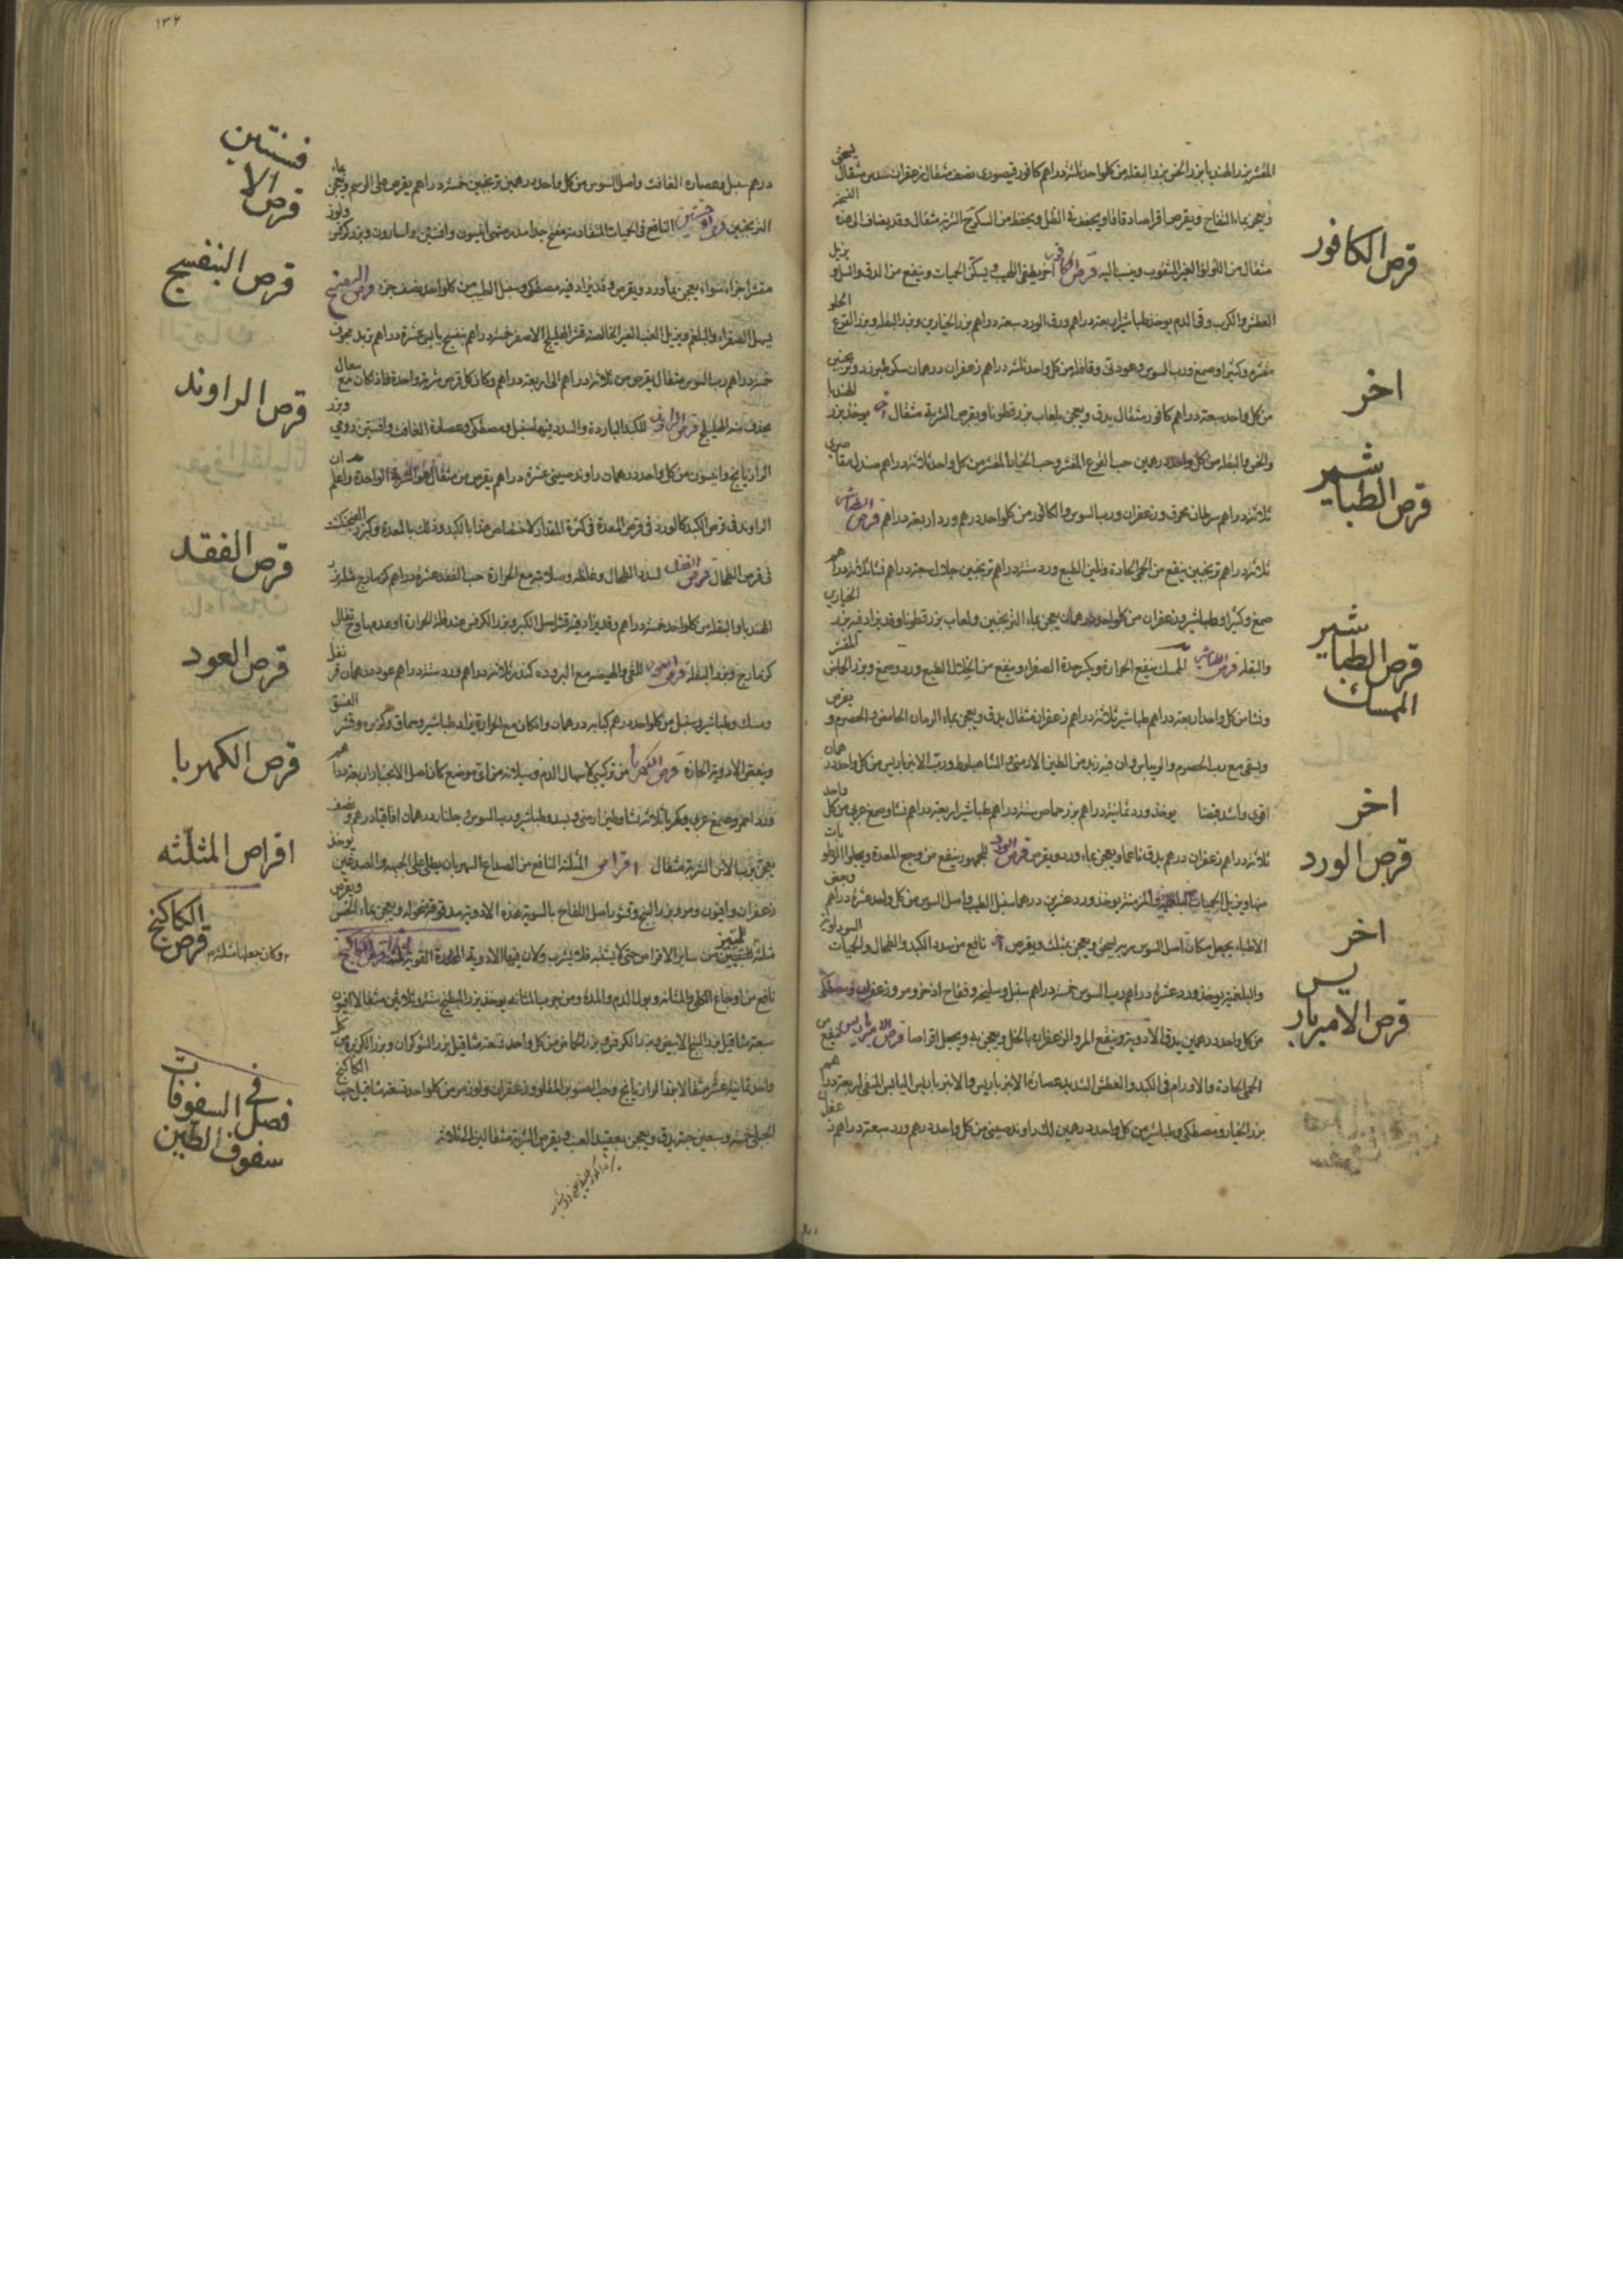 المقشر بزر الهندبا بزر الخس بزر البقلة من كل واحد ثلثة دراهم كافور قيصوري نصف مثقال زعفران سدس مثقال يسحق
ويعجن بماء التفاح ويقرص اقراصا دقاقا ويجفف في الظل ويحفظ من التكرج الشربة مثقال وقد يضاف الى هذه النسخة
مثقال من اللولو الغير المثقوب وينسب اليه قرص الكافور اخر يطفي اللهيب ويسكن الحميات وينفع من الدق والسل ويزيل
العطش والكرب وقي الدم يوخذ طباشير اربعة دراهم ورق الورد سبعة دراهم بزر الخيارين وبزر البقلة وبزر القرع الحلو
مقشرة وكثيرا وصمغ ورب السوس وعود ني وقاقلة من كل واحد ثلثة دراهم زعفران درهمان سكر طبرزد وترنجبين
من كل واحد سبعة دراهم كافور مثقال يدق ويعجن بلعاب بزر قطونا ويقرص الشربة مثقال اخر يوخذ بزر الهندبا
والخس والبقلة من كل واحد درهمين حب القرع المقشر وحب الخيار المقشر من كل واحد ثلاثة دراهم صندل مقاصري
ثلاثة دراهم سرطان محرق وزعفران ورب السوس والكافور من كل واحد درهم ورد اربعة دراهم قرص الطباشير
ثلاثة دراهم ترنجبين ينفع من الحمى الحادة وتلين الطبع ورد ستة دراهم ترنجبين جلال سبعة دراهم نشا ثلاثة دراهم
صمغ وكثيرا وطباشير وزعفران من كل واحد درهمان يعجن بماء الترنجبين ولعاب بزر قطونا وقد يزاد فيه بزر الخيارين
والبقلة قرص الطباشير الممسك ينفع الحرارة ويكسر حدة الصفراء وينفع من انحلال الطبع ورد وصمغ وبزر الحماض المقشر
ونشا من كل واحد اربعة دراهم طباشير ثلاثة دراهم زعفران مثقال يدق ويعجن بماء الرمان الحامض والحصرم ويقرص
ويسقى مع رب الحصرم والريباس وان فيه زيد من الطين الارمني والشاهبلوط ورب الانبرباريس من كل واحد درهمان
اقوى واشد قبضا يوخذ ورد ثمانية دراهم بزر حماض ستة دراهم طباشير اربعة دراهم نشا وصمغ عربي من كل واحد
ثلاثة دراهم زعفران درهم يدق ناعما ويعجن بماء ورد ويقرص قرص الورد للجمهور ينفع من وجع المعدة ويجلو الرطوبات
منها ويزيل الحميات البلغمية والمزمنة يوخذ ورد عشرين درهما سنبل الطيب واصل السوس من كل واحد عشرة دراهم وبعض
الاطباء يجعل مكان اصل السوس مربيه يسحق ويعجن بمثلث ويقرص اخر نافع من سدد الكبد والطحال والحميات السوداوية
والبلغمية يوخذ ورد عشرة دراهم رب السوس خمسة دراهم سنبل وسليخة وفقاح اذخر ومر وزعفران ومصطكي
من كل واحد درهمين يدق الادوية وينقع المر والزعفران بالخل ويعجن به ويجعل اقراصا قرص الامبرباريس ينفع من
الحمى الحادة والاورام في الكبد والعطش الشديد عصارة الانبرباريس والانبرباريس اليابس المنقى اربعة دراهم
بزر الخيار ومصطكي وطباشير من كل واحد درهمين لك راوند صيني من كل واحد درهم ورد سبعة دراهم
قرص الكافور
اخر
قرص الطباشير
قرص الطباشير
الممسك
اخر
قرص الورد
اخر
قرص الامبرباريس
١٣٤
درهم سنبل وعصارة الغافت واصل السوس من كل واحد درهمين ترنجبين خمسة دراهم يقرص على الرسم ويعجن بماء
الترنجبين قرص الافسنتين النافع في الحميات المتقادمة مفتح جدا مدر مشهي انيسون وافسنتين واسارون وبزر كرفس ولوز
مقشر اجزاء سواء يعجن بماء ورد ويقرص وقد يزاد فيه مصطكي وسنبل الطيب من كل واحد نصف جزء قرص البنفسج
يسهل الصفراء والبلغم ويزيل الغب الغير الخالصة قشر الهليلج الاصفر خمسة دراهم بنفسج يابس عشرة دراهم تربد مجوف
خمسة دراهم رب السوس مثقال يقرص من ثلاثة دراهم الى اربعة دراهم وكان كل قرص شربة واحدة فاذا كان مع سعال
يحذف منه الهليلج قرص الراوند للكبد الباردة والسدد فيها سنبل ومصطكي وعصارة الغافت وافسنتين رومي وبزر
الرازيانج وانيسون من كل واحد درهمان راوند صيني عشرة دراهم يقرص من مثقال هو الشربة الواحدة واعلم ان
الراوند في قرص الكبد كالورد في قرص المعدة في كثرة المقدار لاختصاص هذا بالكبد وذلك بالمعدة
في قرص الطحال قرص الفقد لسدد الطحال وغلظه وصلابته مع الحرارة حب الفقد عشرة دراهم كزمازج مثله بزر
الهندبا والبقلة من كل واحد خمسة دراهم وقد يزاد فيه قشر اصل الكبر وبزر الكرفس عند قلة الحرارة او عدمها
كزمازج وبزر البقلة قرص العود للقي والهيضة مع البرودة كندر ثلاثة دراهم ورد ستة دراهم عود درهمان قرنفل
ومسك وطباشير وسنبل من كل واحد درهم كبابة درهمان وان كان مع الحرارة يزاد طباشير وسماق وكزبرة وقشر الفستق
وينقص الادوية الحارة قرص الكهربا من تركيبي لاسهال الدم وسيلانه من اي موضع كان اصل الانجبار اربعة دراهم
ورد احمر وصمغ عربي وكهربا ثلاثة نشا وطين ارمني وبسد وطباشير ورب السوس وجلنار درهمان اقاقيا درهم ونصف
يعجن برب الاس الشربة مثقال اقراص المثلثة النافع من الصداع السهر بان يطلى على الجبهة والصدغين يوخذ
زعفران وافيون ومر وبزر البنج وقشور اصل اللفاح بالسوية هذه الادوية مدقوقة منخولة ويعجن بماء الخس ويقرص
مثلثة لتتميز من ساير الاقراص حتى لا يشتبه فلا يشرب وكان فيها الادوية المخدرة القوية قرص الكاكنج
نافع من اوجاع الكلى والمثانة وبول الدم والمدة ومن جرب المثانة يوخذ بزر البطيخ ستة وثلاثين مثقالا افيون
سبعة مثاقيل بزر البنج الابيض وبزر الكرفس وبزر الحماض من كل واحد تسعة مثاقيل بزر الشوكران وبزر الكزبرة من كل
واحد ثمانية عشر مثقالا بزر الرازيانج وحب الصنوبر المقلو وزعفران ولوز مر من كل واحد تسعة مثاقيل حب الكاكنج
الجبلي خمسة وسبعين حبة يدق ويعجن بعقيد العنب ويقرص الشربة مثقالين الى ثلاثة
قرص الافسنتين
قرص البنفسج
قرص الراوند
قرص الفقد
قرص العود
قرص الكهربا
اقراص المثلثه
قرص الكاكنج
وكان جعلها مثلثة
فصل في السفوفات
سفوف الطين